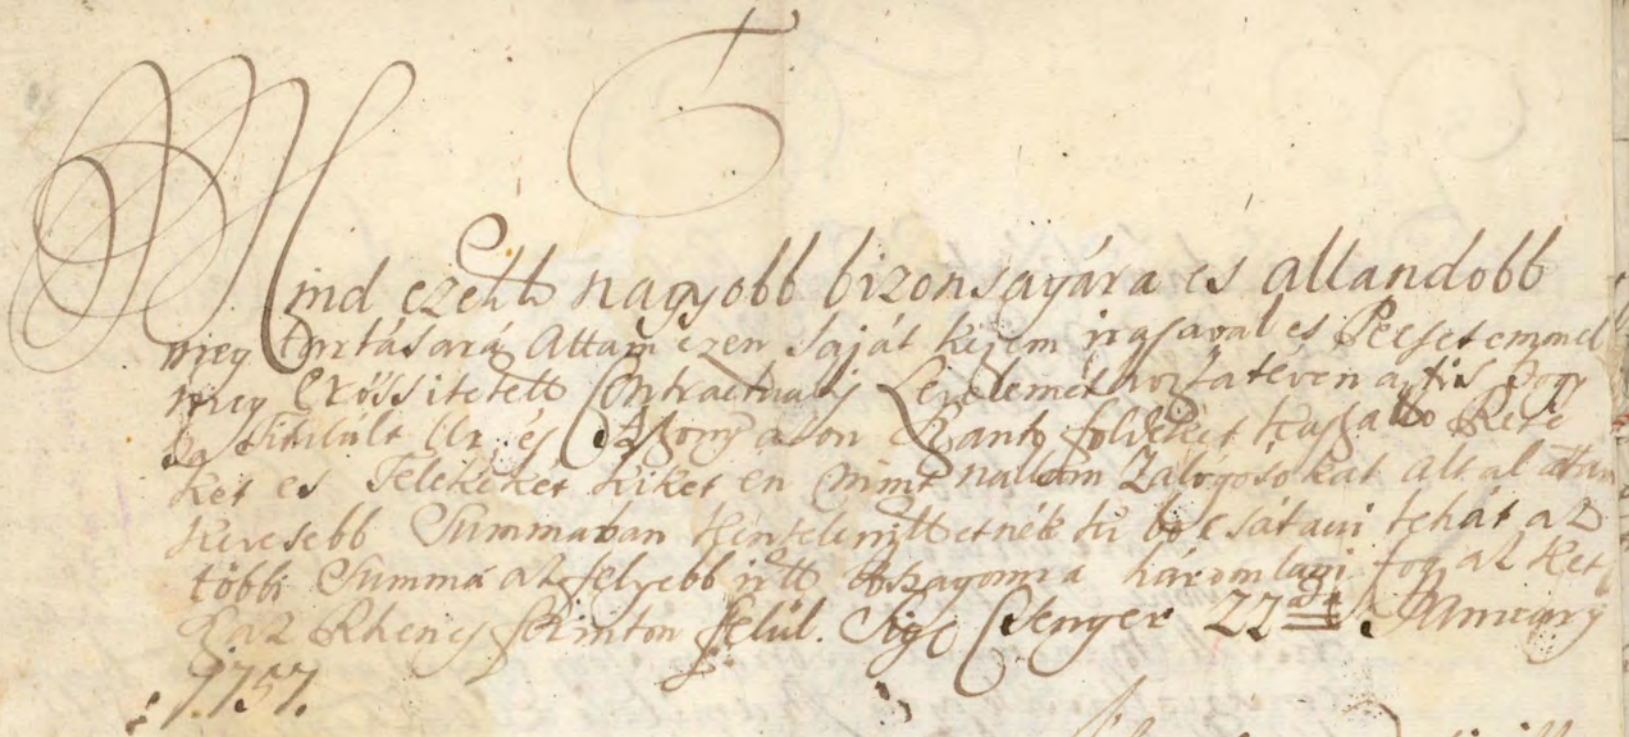 Mind ezeknek nagyobb bizonsagára es allandobb
meg tartására Attam ezen saját kezem irasaval es Pecsetemmel
meg Erössitetett Contractualis Levelemet hozzá tévén azt is hogy
ha Titulált Ur és Aszony ason Szanto földeket kaszallo Rete
ket es Telekeket kiket en mint nallam Zalogosokat altal attam
kevesebb Summaban kentelenittetnék ki bocsátani tehát az
többi Summa az felyebb irtt Joszagomra háromlani fog az Ket
Száz Rhenes forinton felül. Sig. Csenger 22da January
1757.